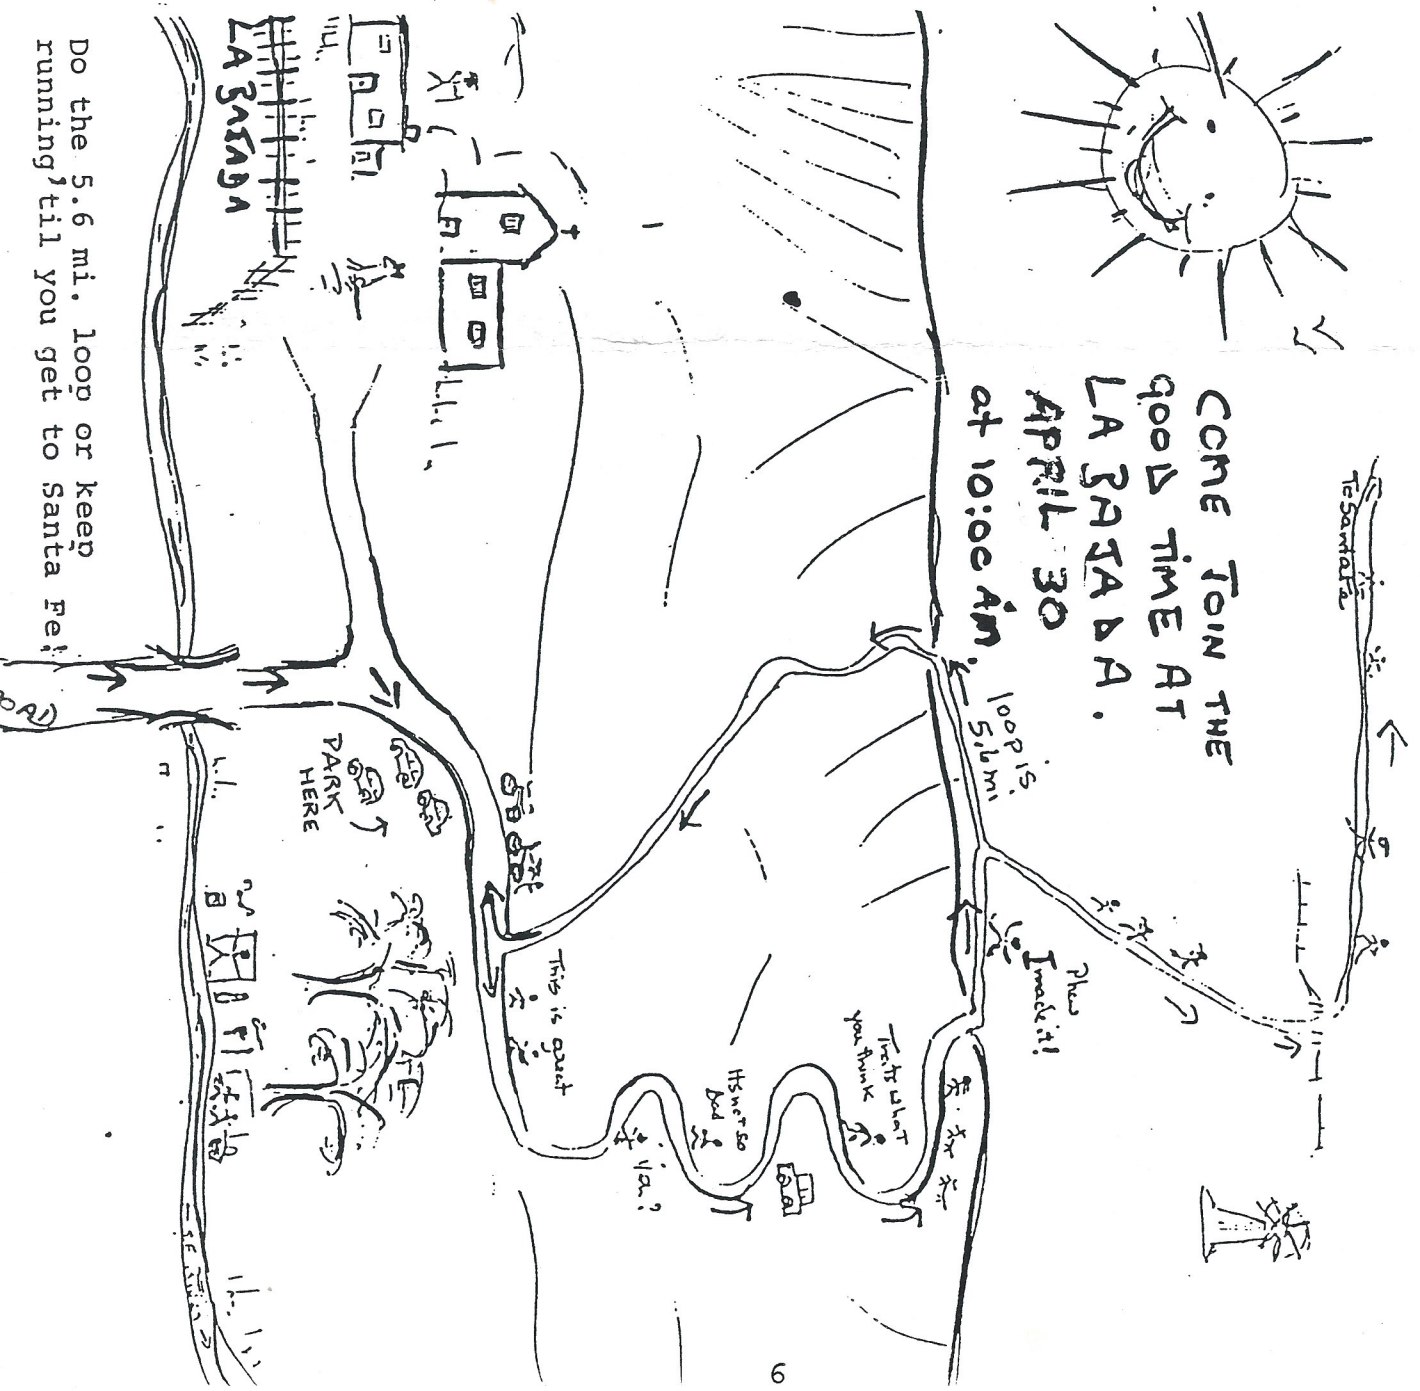 To Santa Fe
COME JOIN THE
GOOD TIME AT
LA BAJADA.
APRIL 30
at 10:00 AM.
loop is
5.6 mi
Phew
I made it!
That's what
you think
Its not so
bad
ya?
This is great
PARK
HERE
LA BAJADA
Do the 5.6 mi. loop or keep
running 'til you get to Santa Fe!
6